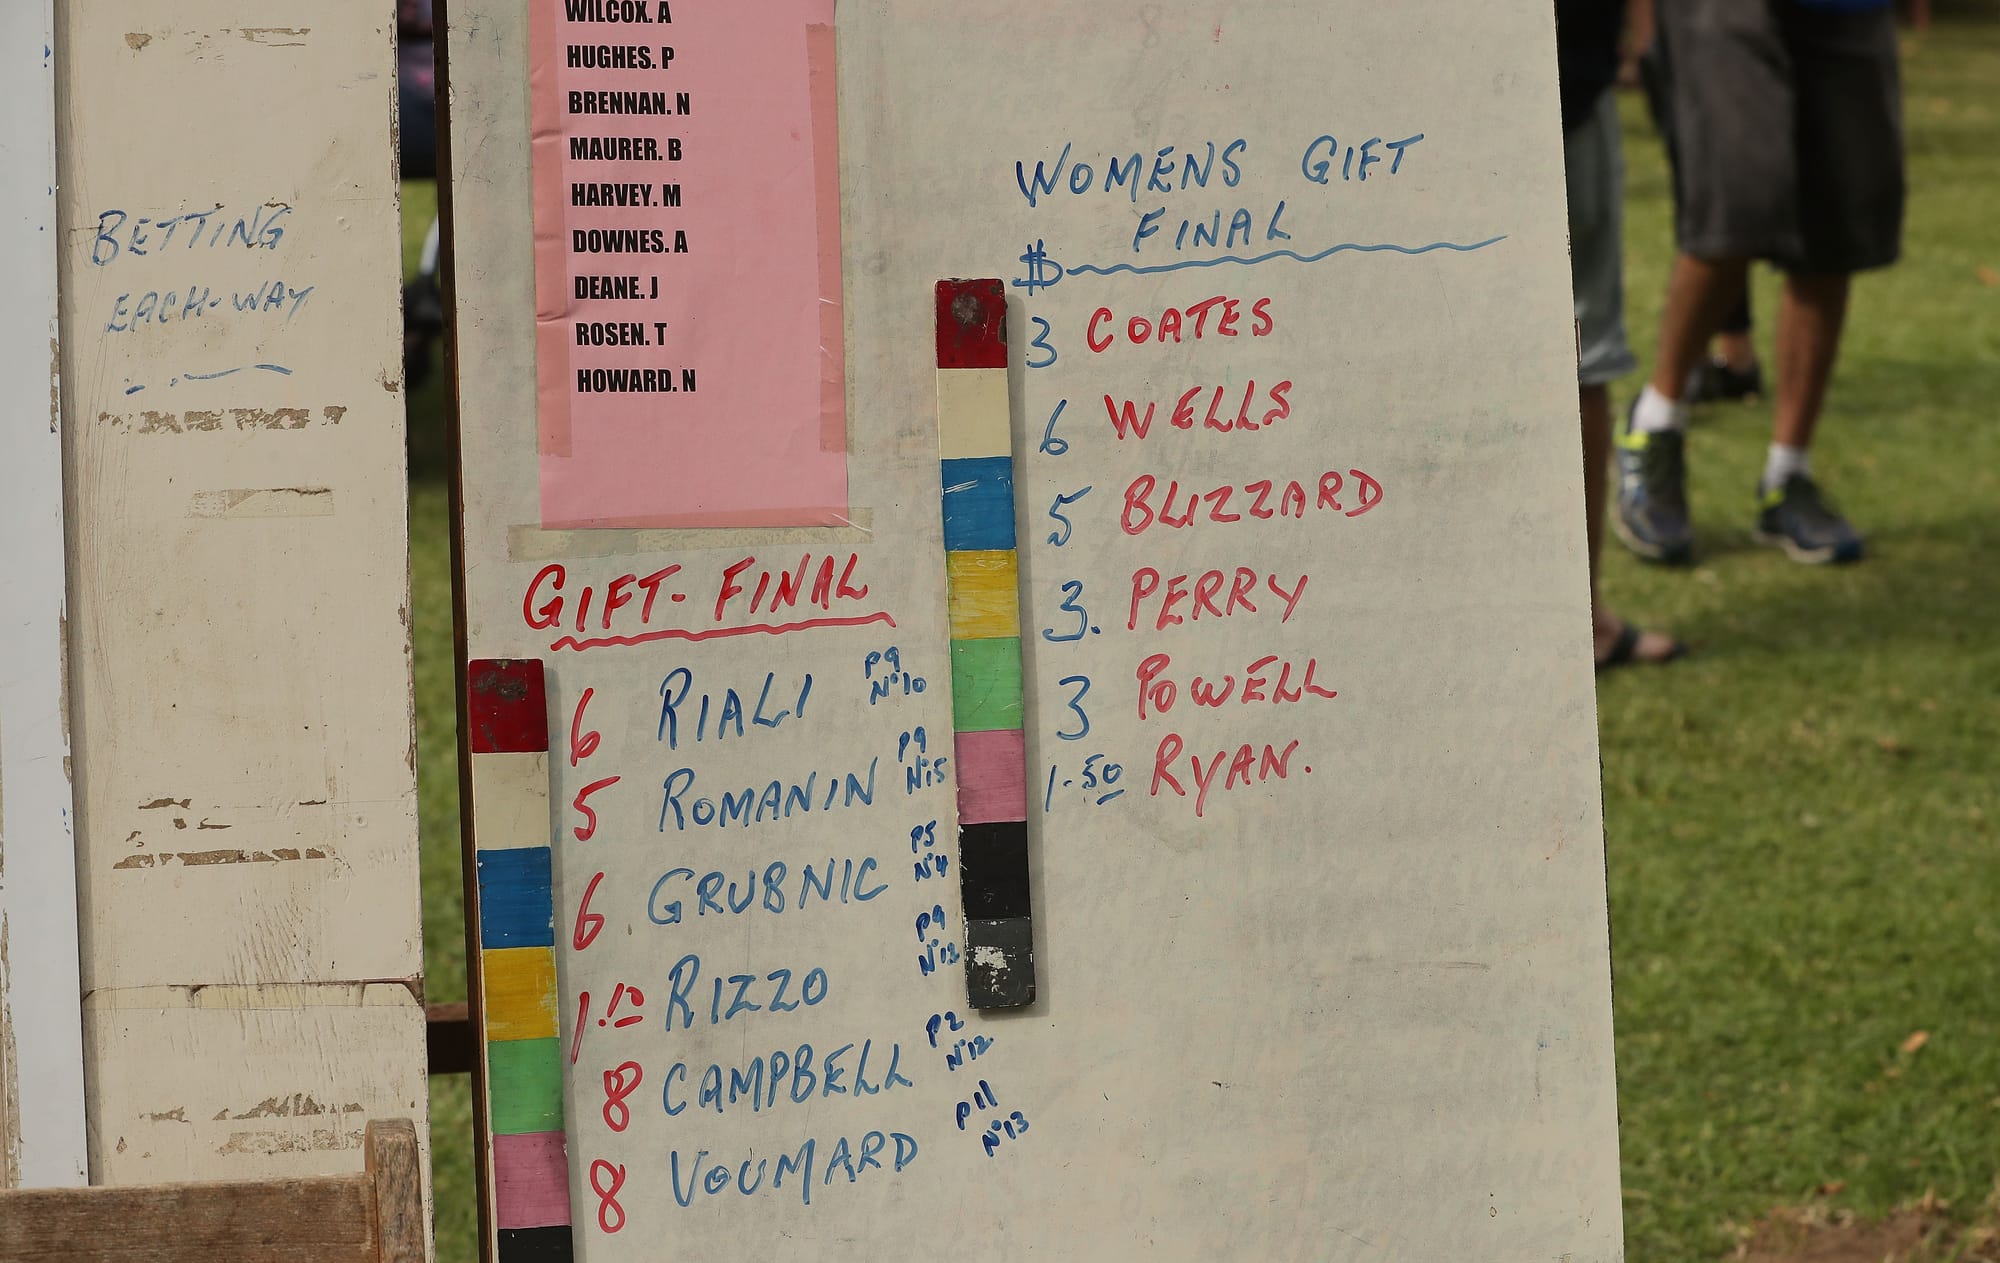 BETTING
EACH-WAY
WILCOX. A
HUGHES. P
BRENNAN. N
MAURER. B
HARVEY. M
DOWNES. A
DEANE. J
ROSEN. T
HOWARD. N
GIFT-FINAL
6 RIALI P9 Nº10
5 ROMANIN P9 Nº15
6 GRUBNIC P5 Nº4
1.10 RIZZO P9 Nº12
8 CAMPBELL P2 Nº12
8 VOUMARD P11 Nº13
WOMENS GIFT
FINAL
$
3 COATES
6 WELLS
5 BLIZZARD
3. PERRY
3 POWELL
1-50 RYAN.